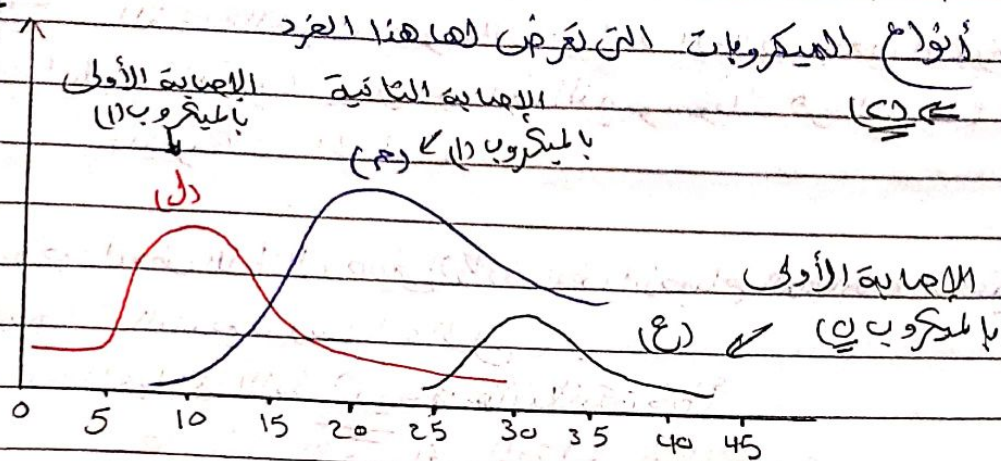 أنواع الميكروبات التى تعرض لها هذا الفرد
⇐ (٢)
الإصابة الأولى
بالميكروب (١)
(ل)
الإصابة الثانية
بالميكروب (١)
(ص)
الإصابة الأولى
بالميكروب (٢)
(ع)
0 5 10 15 20 25 30 35 40 45